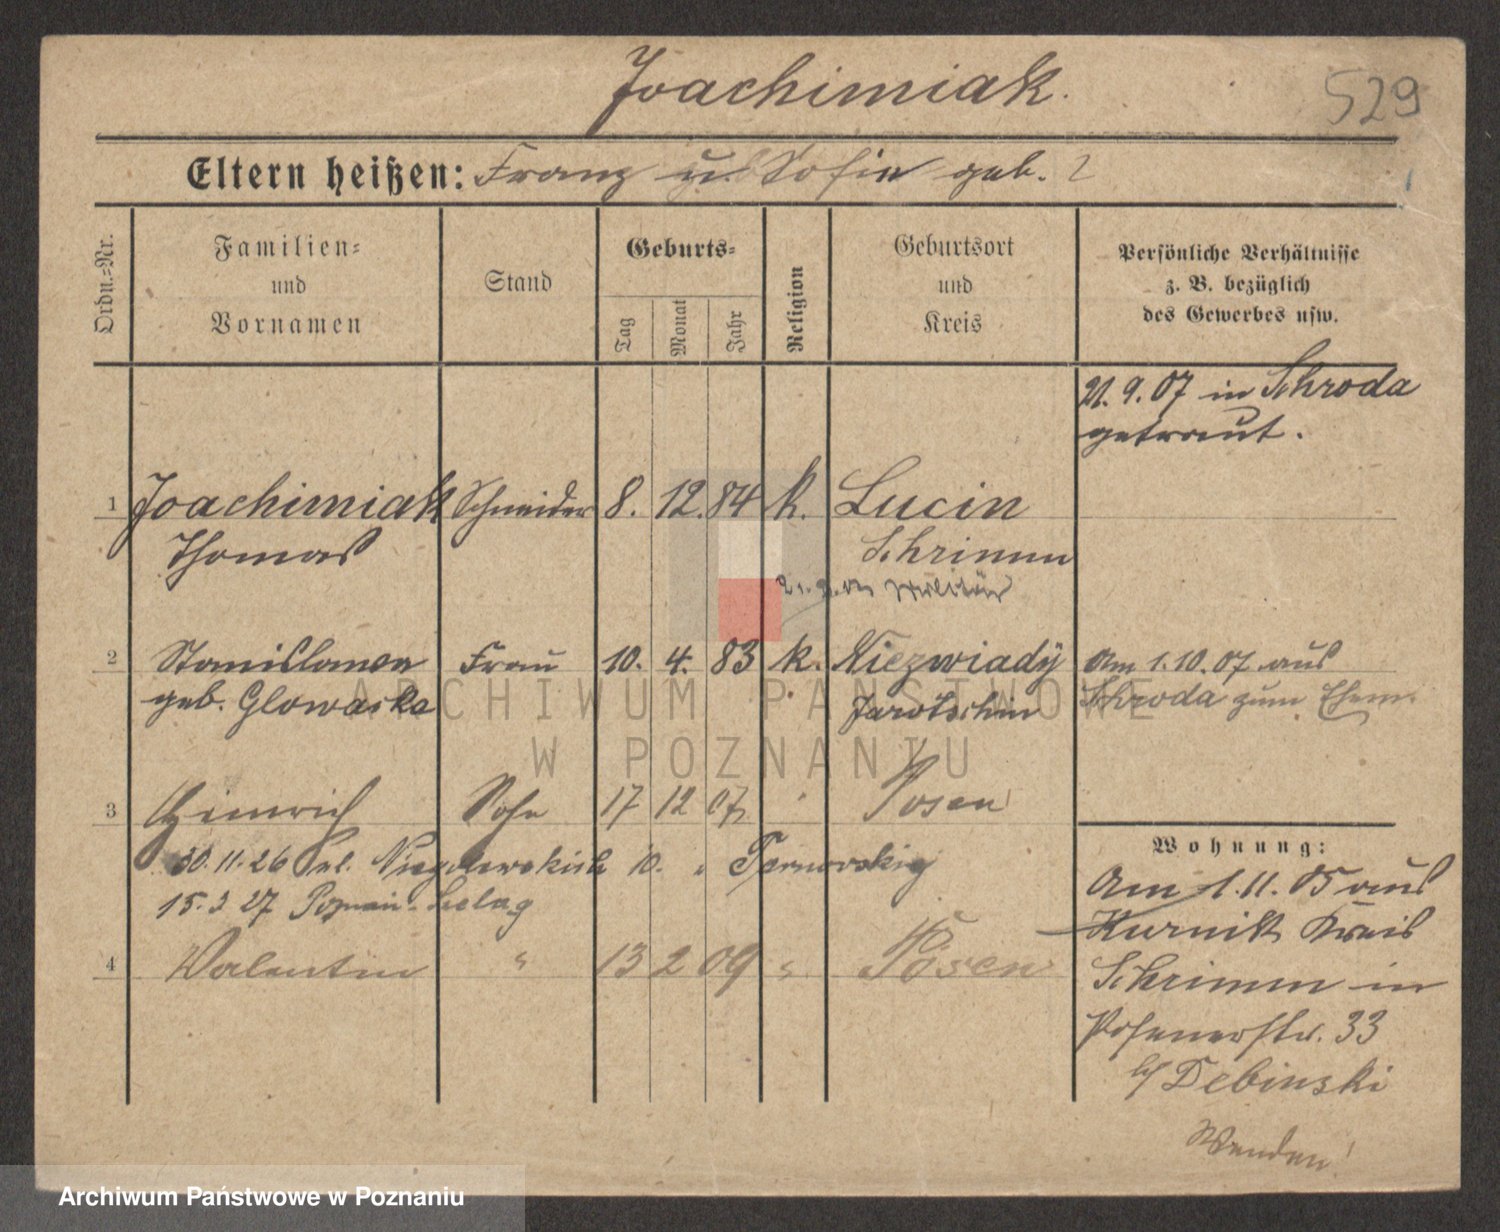 Joachimiak.
529
Eltern heißen: Franz u. Sofie geb. ?
Ordn.=Nr.
Familien=
und
Vornamen
Stand
Geburts=
Tag
Monat
Jahr
Religion
Geburtsort
und
Kreis
Persönliche Verhältnisse
z. B. bezüglich
des Gewerbes usw.
21. 9. 07 in Schroda
getraut.
1 Joachimiak Schneider 8. 12. 84 k. Lucin
Thomas Schrimm
Militär
2 Stanislawa Frau 10. 4. 83 k. Niezwiady
geb. Glowacka Jarotschin
Am 1. 10. 07 aus
Schroda zum Ehem.
3 Heinrich Sohn 17 12 07 " Posen
30. 11. 26 Niegolewskich 10.
15. 2 27 Poznań
4 Valentin " 13 2 09 " Posen
Wohnung:
Am 1. 11. 05 aus
Kurnik Kreis
Schrimm in
Posenerstr. 33
b/ Debinski
Wenden!
ARCHIWUM PAŃSTWOWE
W POZNANIU
Archiwum Państwowe w Poznaniu